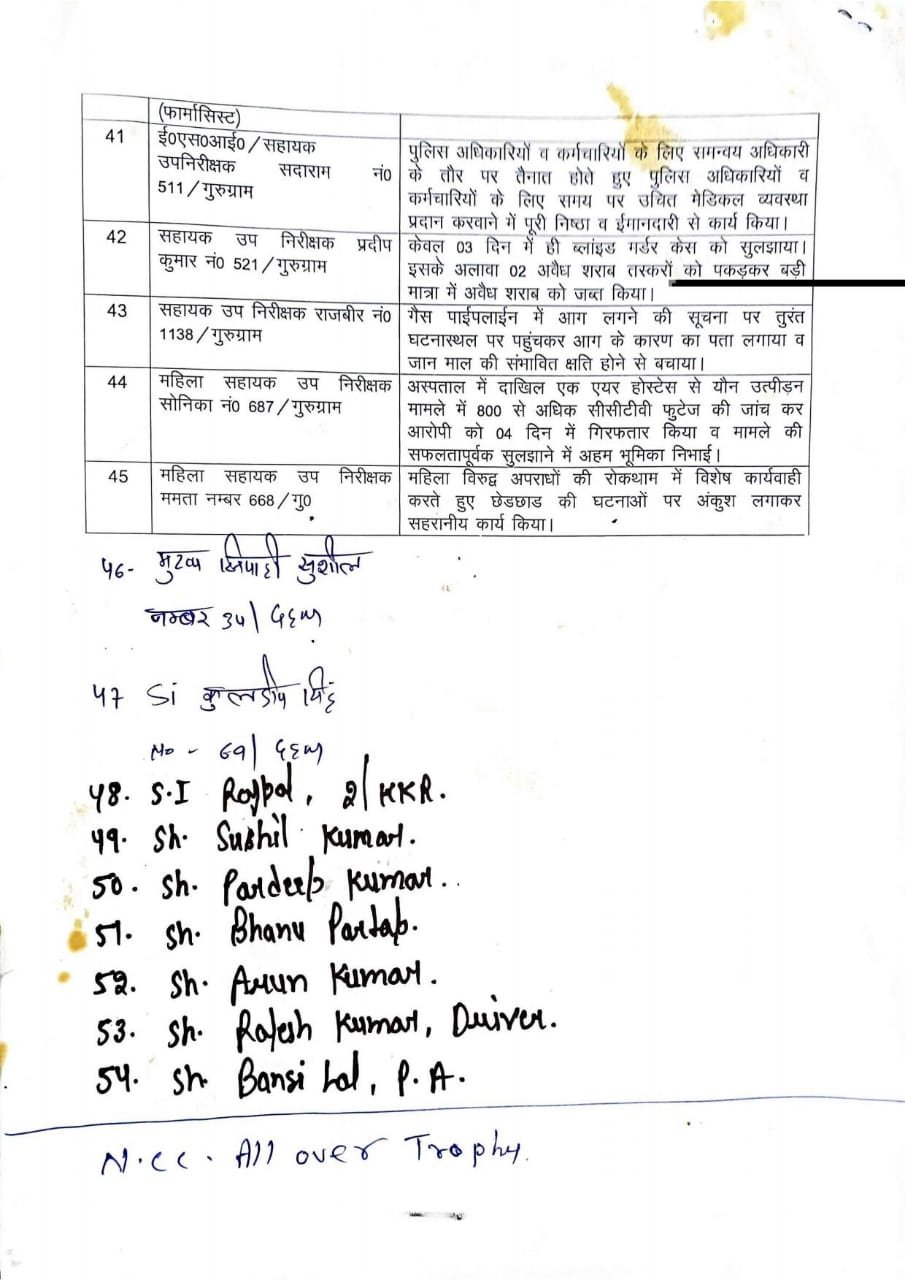 (फार्मासिस्ट)
41
ई०एस०आई० / सहायक
उपनिरीक्षक सदाराम नं०
511 / गुरुग्राम
पुलिस अधिकारियों व कर्मचारियों के लिए समन्वय अधिकारी
के तौर पर तैनात होते हुए पुलिस अधिकारियों व
कर्मचारियों के लिए समय पर उचित मेडिकल व्यवस्था
प्रदान करवाने में पूरी निष्ठा व ईमानदारी से कार्य किया।
42
सहायक उप निरीक्षक प्रदीप
कुमार नं० 521 / गुरुग्राम
केवल 03 दिन में ही ब्लांइड मर्डर केस को सुलझाया।
इसके अलावा 02 अवैध शराब तस्करों को पकड़कर बड़ी
मात्रा में अवैध शराब को जब्त किया।
43
सहायक उप निरीक्षक राजबीर नं०
1138 / गुरुग्राम
गैस पाईपलाईन में आग लगने की सूचना पर तुरंत
घटनास्थल पर पहुंचकर आग के कारण का पता लगाया व
जान माल की संभावित क्षति होने से बचाया।
44
महिला सहायक उप निरीक्षक
सोनिका नं० 687 / गुरुग्राम
अस्पताल में दाखिल एक एयर होस्टेस से यौन उत्पीड़न
मामले में 800 से अधिक सीसीटीवी फुटेज की जांच कर
आरोपी को 04 दिन में गिरफतार किया व मामले की
सफलतापूर्वक सुलझाने में अहम भूमिका निभाई।
45
महिला सहायक उप निरीक्षक
ममता नम्बर 668 / गु०
महिला विरुद्व अपराधों की रोकथाम में विशेष कार्यवाही
करते हुए छेडछाड की घटनाओं पर अंकुश लगाकर
सहरानीय कार्य किया।
46- सिपाही सुशील
नम्बर
47 Si कुलदीप सिंह
No -
48. S.I Rajpal, 2/KKR.
49. Sh. Sushil Kumar.
50. Sh. Pardeep Kumar..
51. Sh. Bhanu Partap.
52. Sh. Arun Kumar.
53. Sh. Rajesh Kumar, Driver.
54. Sh. Bansi Lal, P.A.
N.CC. All over Trophy.